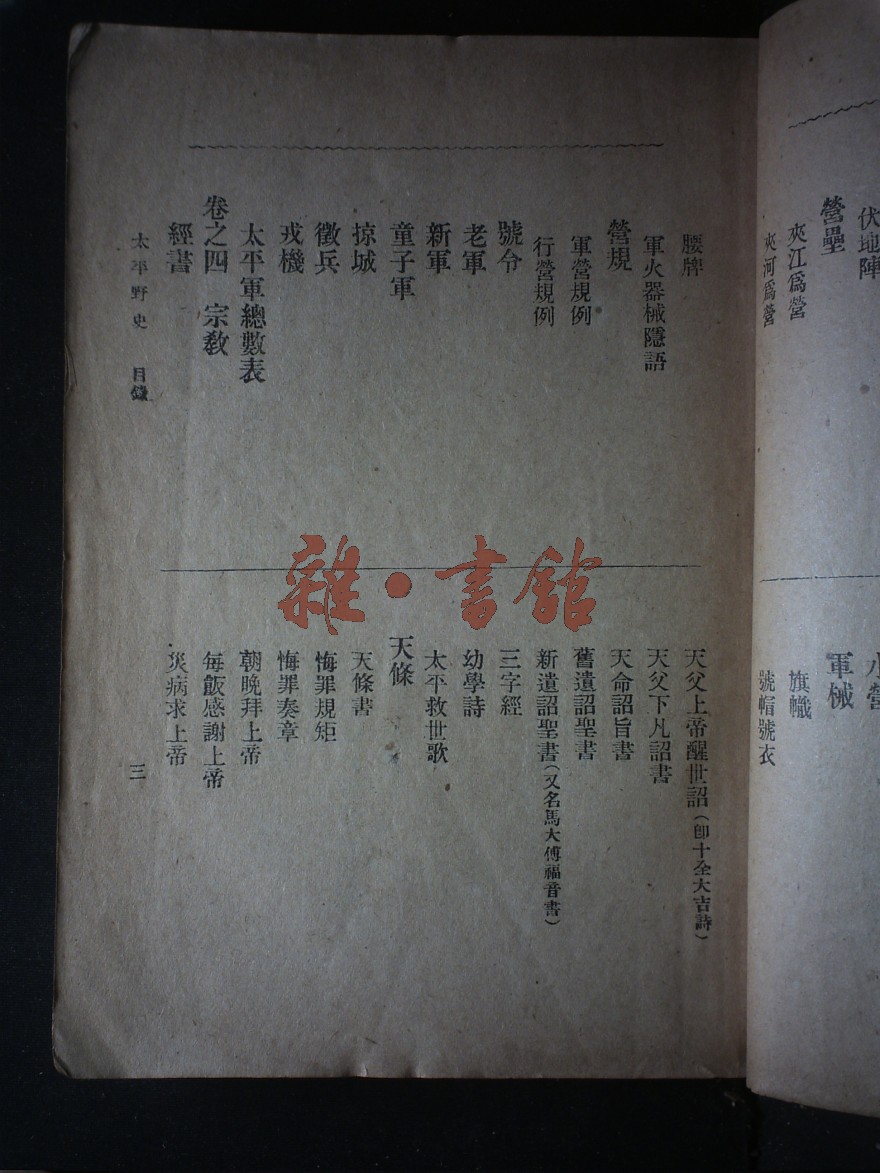 伏地陣
營壘
夾江爲營
夾河爲營
軍械
旗幟
號帽號衣
腰牌
軍火器械隱語
營規
軍營規例
行營規例
號令
老軍
新軍
童子軍
掠城
徵兵
戎機
太平軍總數表
卷之四 宗教
經書
天父上帝醒世詔(即十全大吉詩)
天父下凡詔書
天命詔旨書
舊遺詔聖書
新遺詔聖書(又名馬大傅福音書)
三字經
幼學詩
太平救世歌
天條
天條書
悔罪規矩
悔罪奏章
朝晚拜上帝
每飯感謝上帝
災病求上帝
太平野史 目錄
三
雜·書館